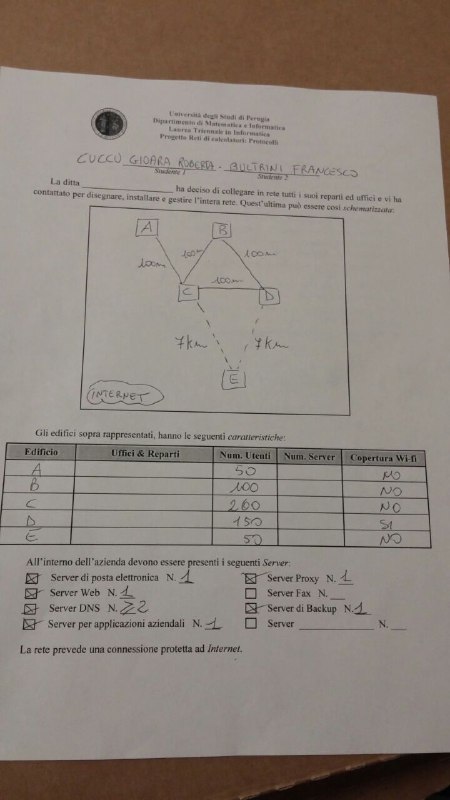 Università degli Studi di Perugia
Dipartimento di Matematica e Informatica
Laurea Triennale in Informatica
Progetto Reti di calcolatori: Protocolli
CUCCU GIOARA ROBERTA - BULTRINI FRANCESCO
Studente 1 Studente 2
La ditta ____________________ ha deciso di collegare in rete tutti i suoi reparti ed uffici e vi ha
contattato per disegnare, installare e gestire l'intera rete. Quest'ultima può essere così schematizzata:
A B
100m 100m 100m
100m
C D
7km 7km
E
INTERNET
Gli edifici sopra rappresentati, hanno le seguenti caratteristiche:
Edificio Uffici & Reparti Num. Utenti Num. Server Copertura Wi-fi
A 50 NO
B 100 NO
C 200 NO
D 150 SI
E 50 NO
All'interno dell'azienda devono essere presenti i seguenti Server:
Server di posta elettronica N. 1 Server Proxy N. 1
Server Web N. 1 Server Fax N. __
Server DNS N. ≥2 Server di Backup N. 1
Server per applicazioni aziendali N. 1 Server ______________ N. __
La rete prevede una connessione protetta ad Internet.